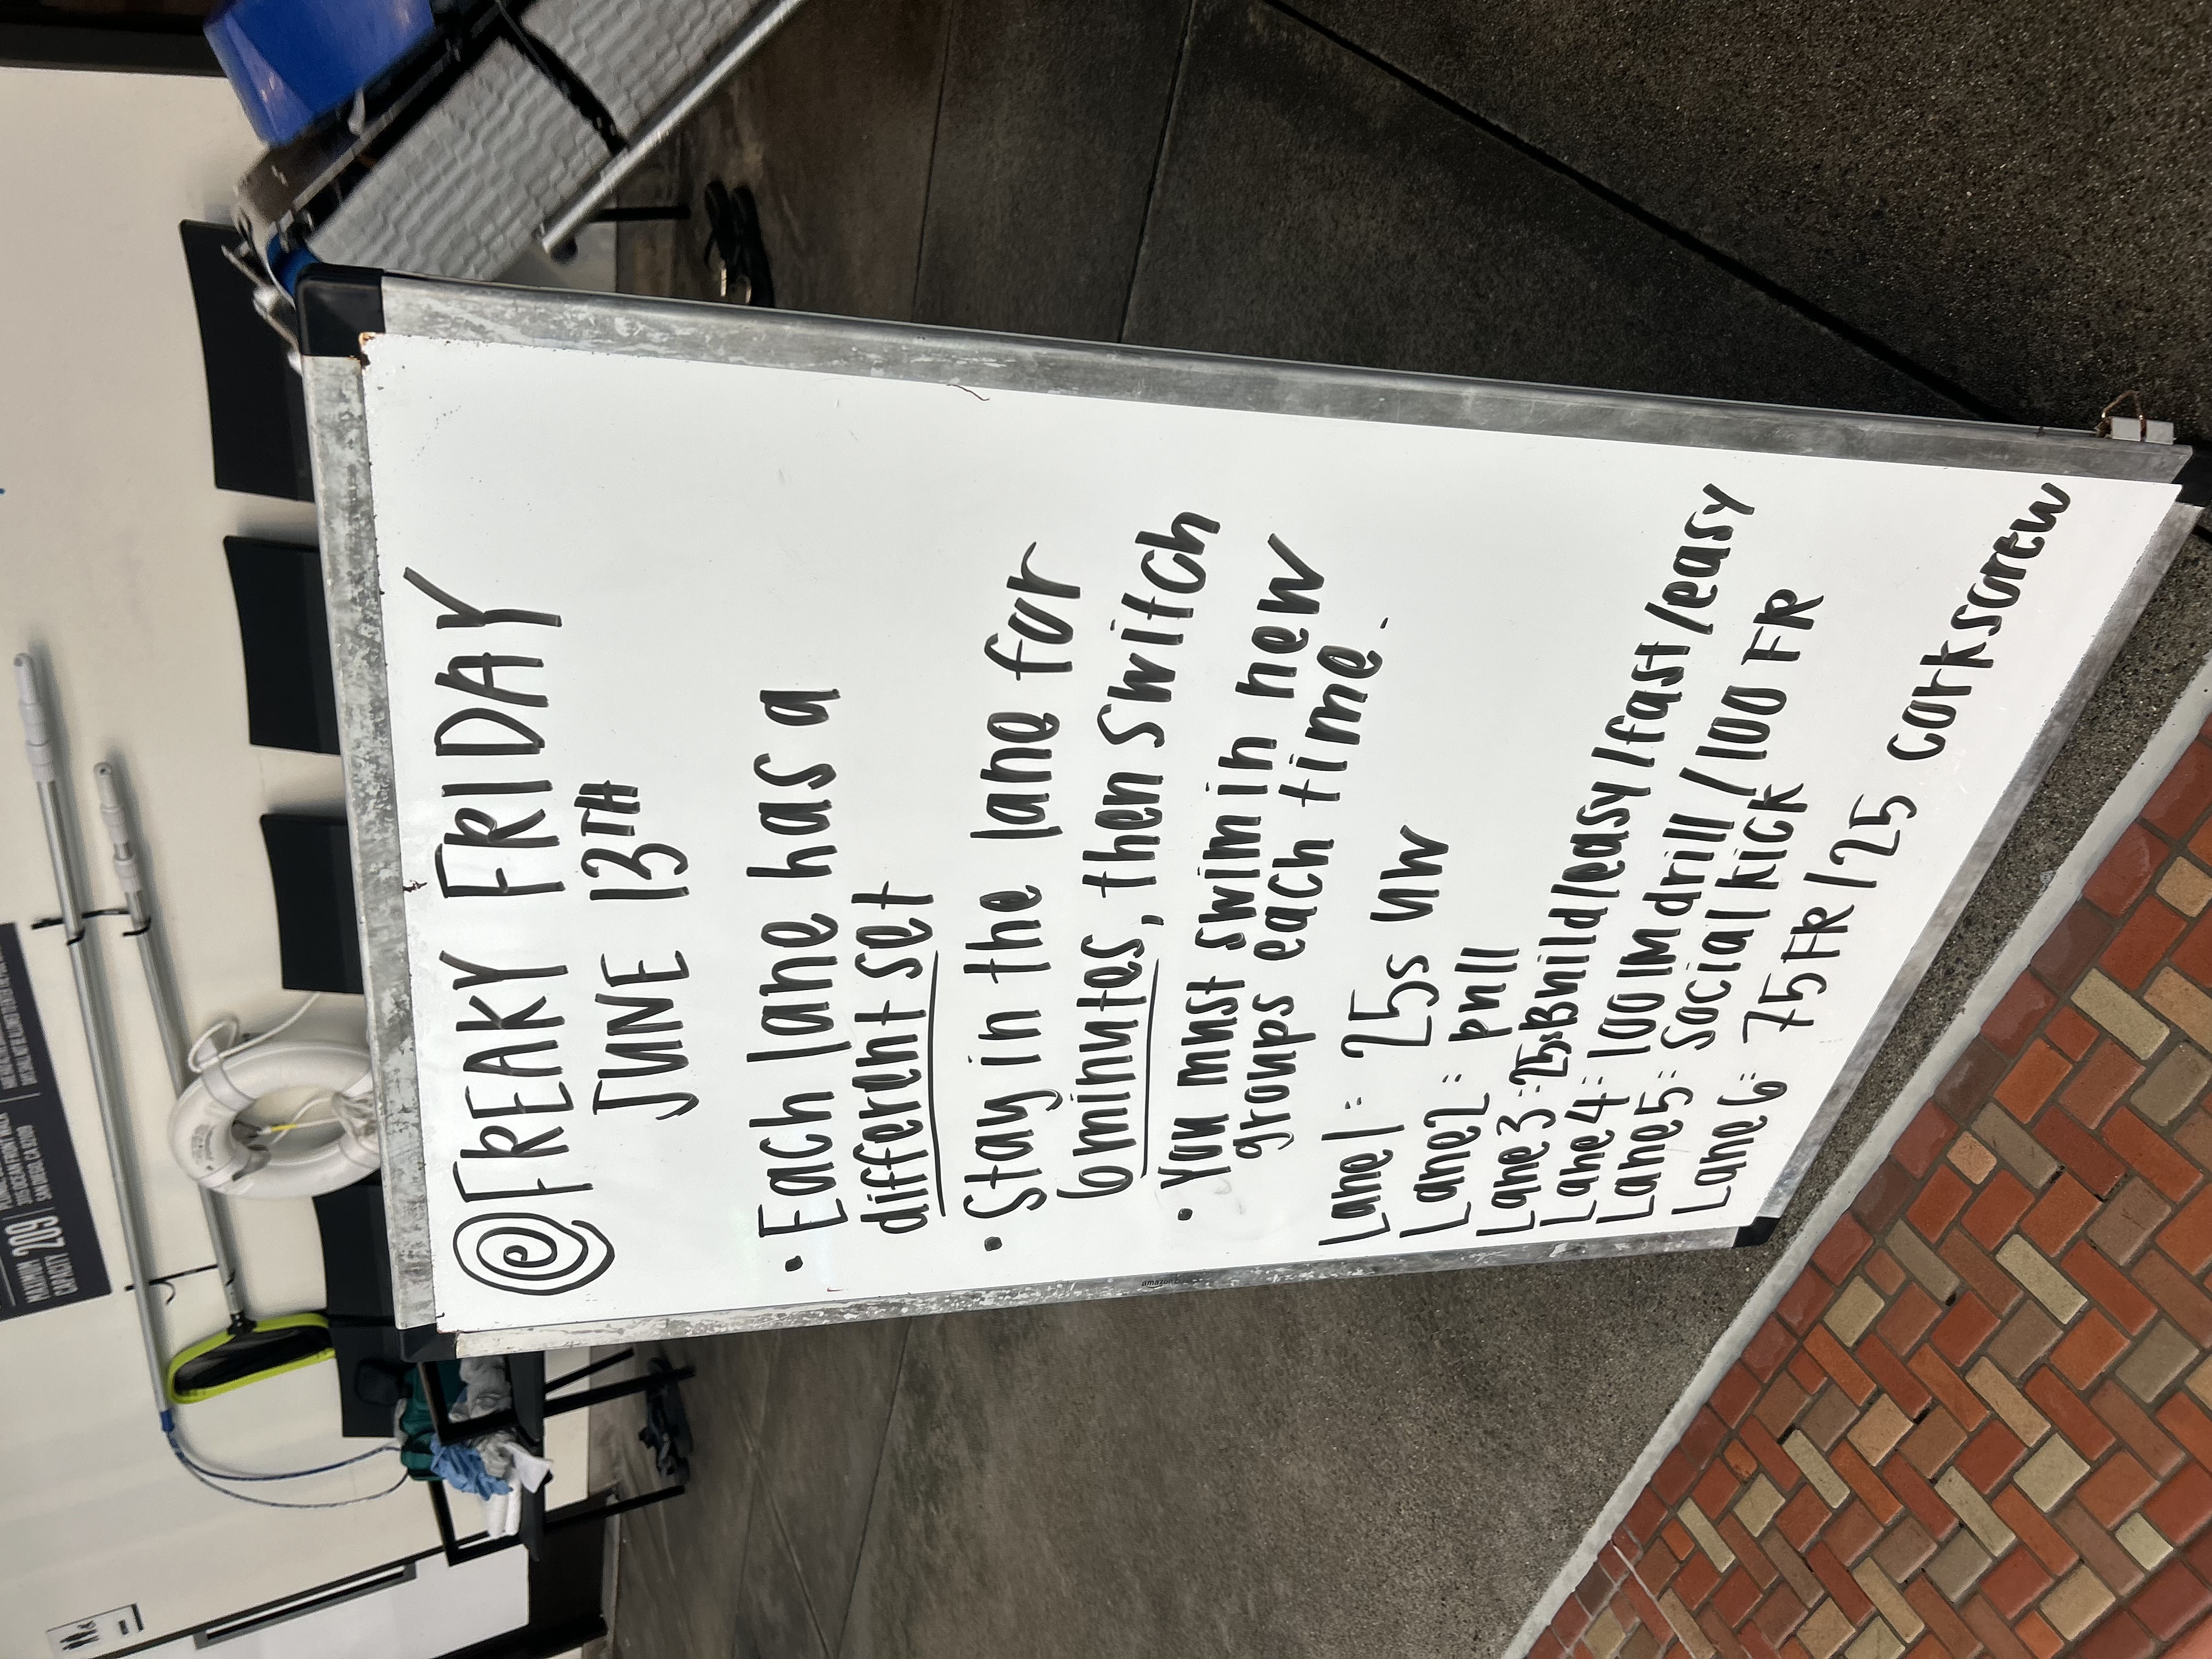 @FREAKY FRIDAY
JUNE 13TH
• Each lane has a
different set
• Stay in the lane for
6 minutes, then switch
• You must swim in new
groups each time.
Lane 1: 25s UW
Lane 2: pull
Lane 3: 25s Build/easy/fast/easy
Lane 4: 100 IM drill/100 FR
Lane 5: Social kick
Lane 6: 75 FR/25 corkscrew
amazon
MAXIMUM
CAPACITY 209